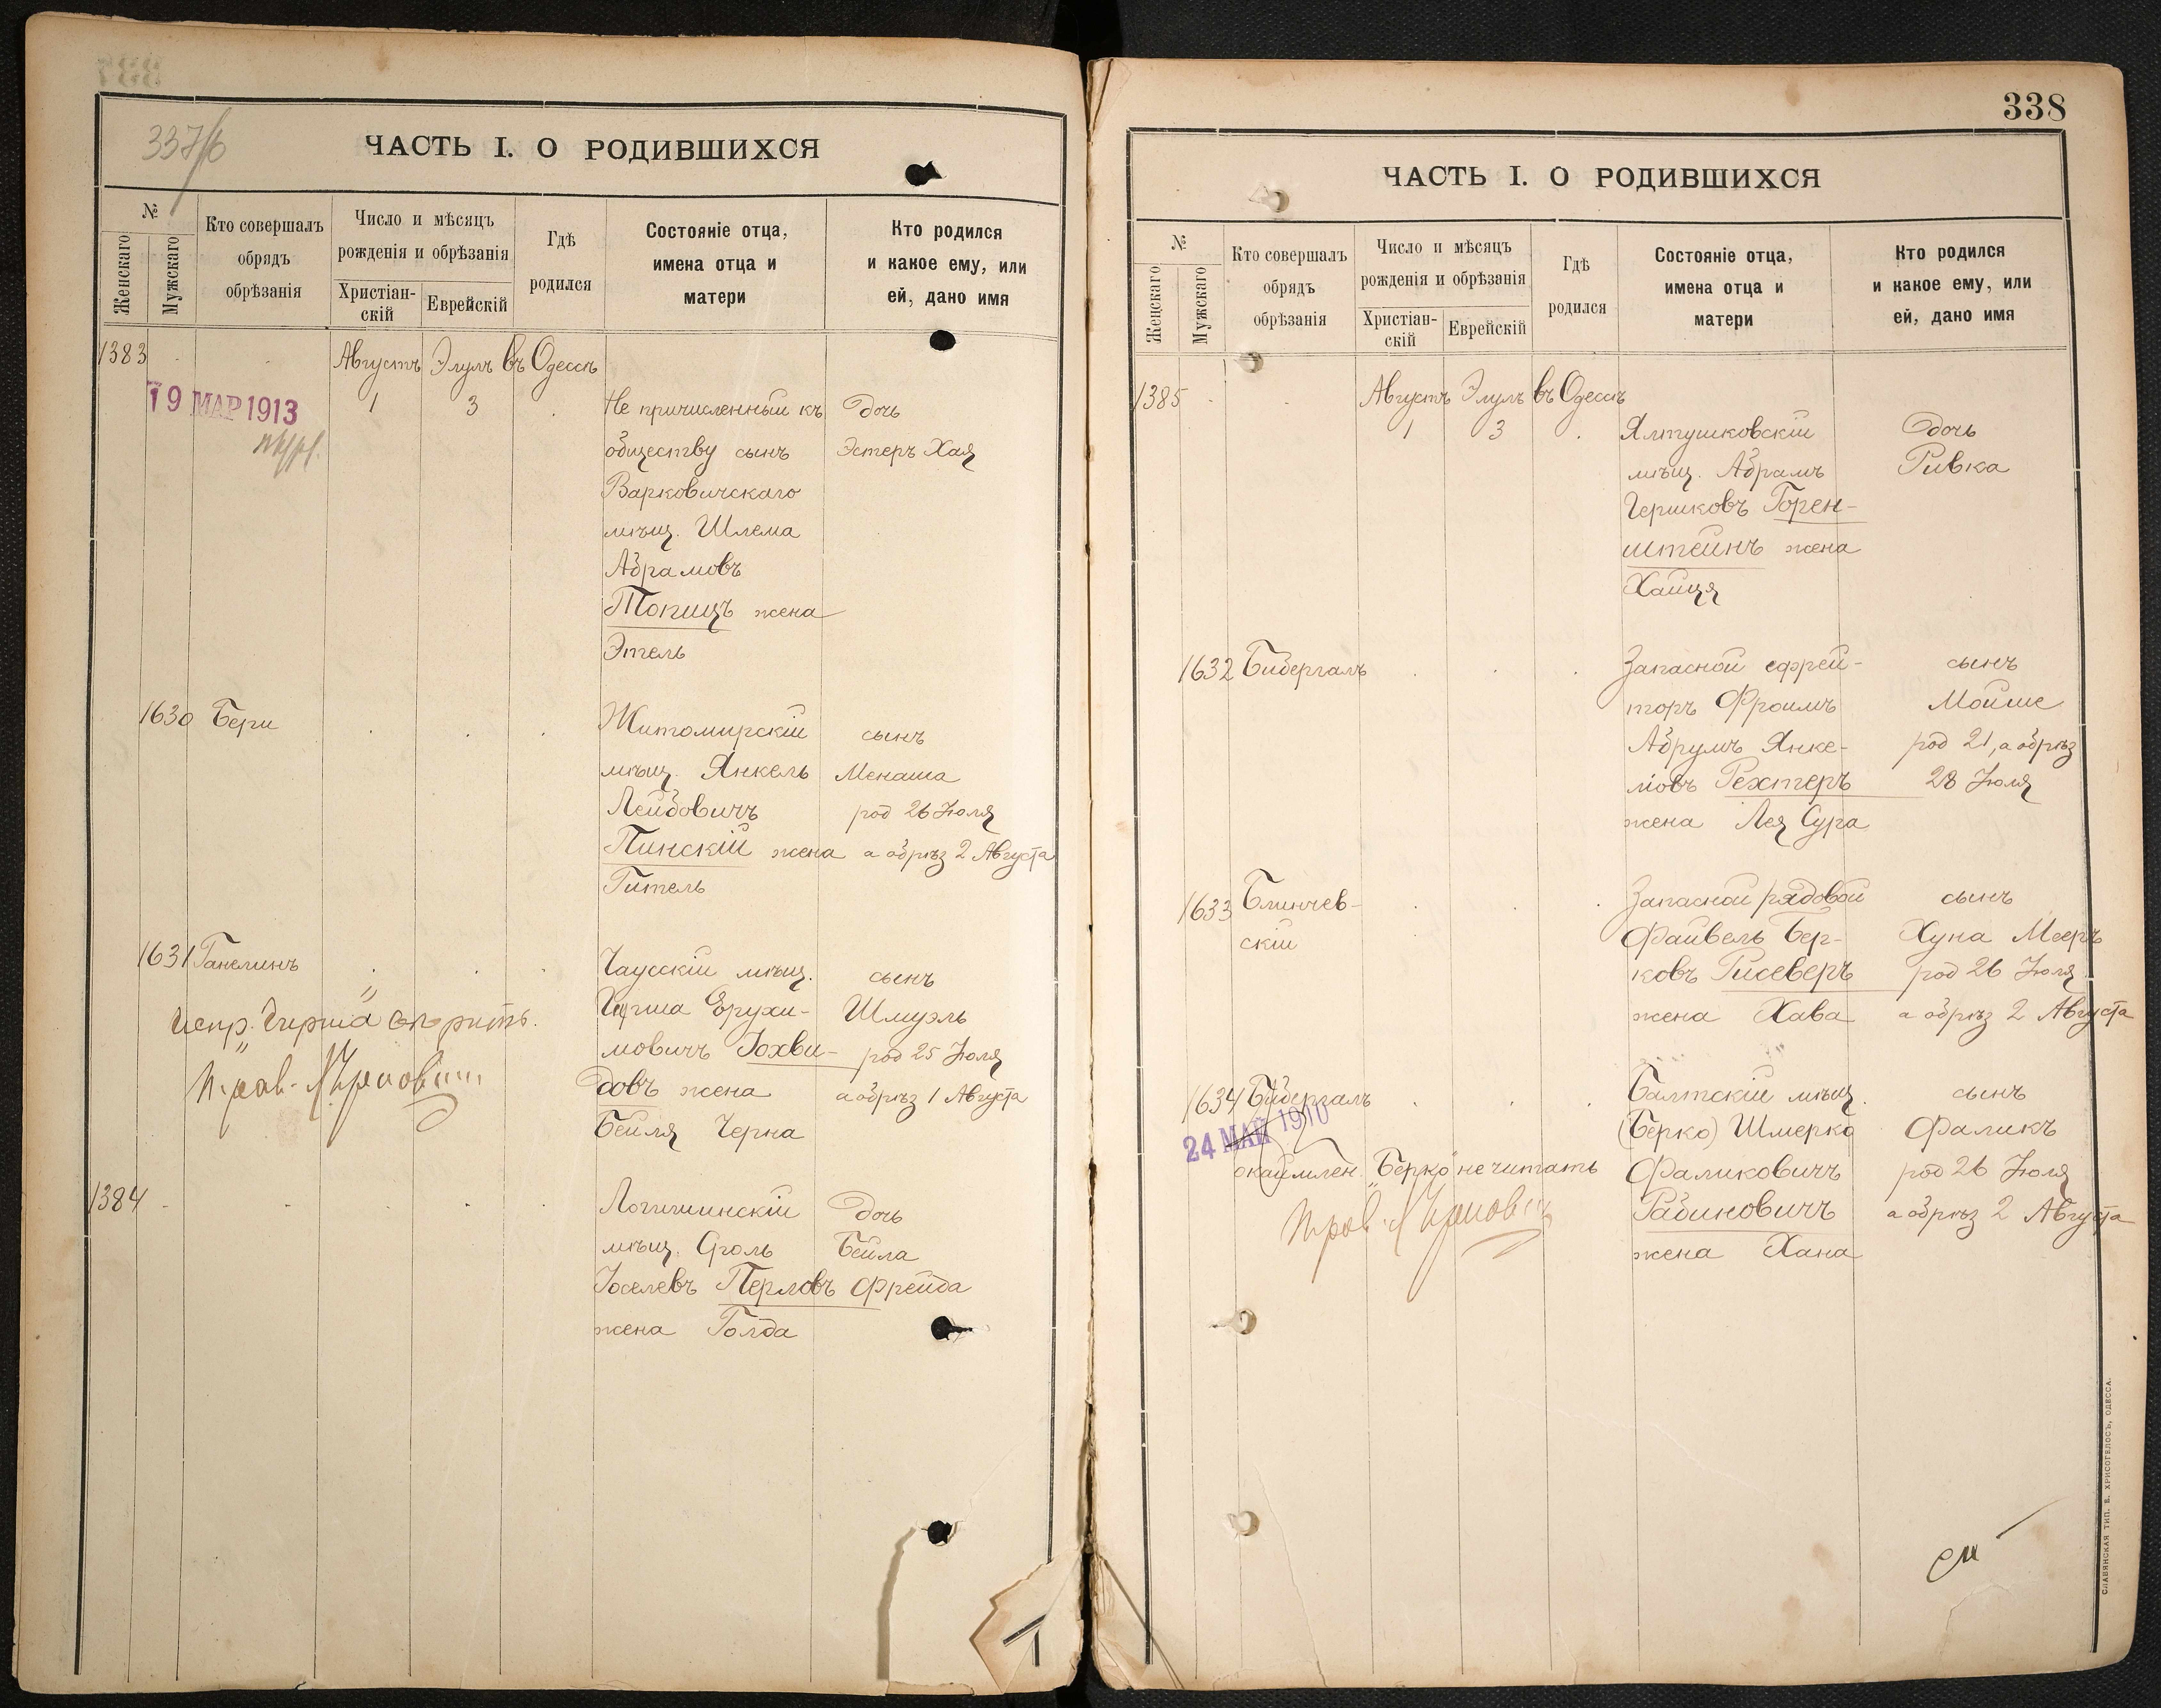 337/б
ЧАСТЬ I. О РОДИВШИХСЯ
№
Женскаго
Мужскаго
Кто совершалъ
обрядъ
обрѣзанія
Число и мѣсяцъ
рожденія и обрѣзанія
Христіан-
скій
Еврейскій
Гдѣ
родился
Состояніе отца,
имена отца и
матери
Кто родился
и какое ему, или
ей, дано имя
1383 Августъ Элулъ въ Одессѣ
19 МАР 1913 1 3 Не причисленный къ дочь
обществу сынъ Эстеръ Хая
Варковичскаго
мѣщ. Шлема
Абрамовъ
Топицъ жена
Этель
1630 Бери Житомирскій сынъ
мѣщ. Янкель Менаша
Лейбовичъ род 26 Іюля
Пинскій жена а обрѣз 2 Августа
Гитель
1631 Ганелинъ Чаусскій мѣщ. сынъ
испр. "Гирша" вѣрить. Гирша Ерухи- Шмуэль
мовичъ Іохви- род 25 Іюля
довъ жена а обрѣз 1 Августа
Бейля Черна
1384 Логишинскій дочь
мѣщ. Сроль Бейла
Іоселевъ Перловъ Фрейда
жена Голда
338
ЧАСТЬ I. О РОДИВШИХСЯ
№
Женскаго
Мужскаго
Кто совершалъ
обрядъ
обрѣзанія
Число и мѣсяцъ
рожденія и обрѣзанія
Христіан-
скій
Еврейскій
Гдѣ
родился
Состояніе отца,
имена отца и
матери
Кто родился
и какое ему, или
ей, дано имя
1385 Августъ Элулъ въ Одессѣ
1 3 Ялтушковскій дочь
мѣщ. Абрамъ Ривка
Гершковъ Горен-
штейнъ жена
Хайця
1632 Бибергалъ Запасной ефрей- сынъ
торъ Фроимъ Мойше
Абрумъ Янке- род 21, а обрѣз
ловъ Рехтеръ 28 Іюля
жена Лея Сура
1633 Блинчев- Запасной рядовой сынъ
скій Файвель Бер- Хуна Мееръ
ковъ Гисеверъ род 26 Іюля
жена Хава а обрѣз 2 Августа
1634 Бибергалъ Балтскій мѣщ. сынъ
24 МАЙ 1910 (Берко) Шмерко Фаликъ
окаймлен. "Берко" не читать Фаликовичъ род 26 Іюля
Рабиновичъ а обрѣз 2 Августа
жена Хана
СЛАВЯНСКАЯ ТИП. Е. ХРИСОГЕЛОСЪ, ОДЕССА.